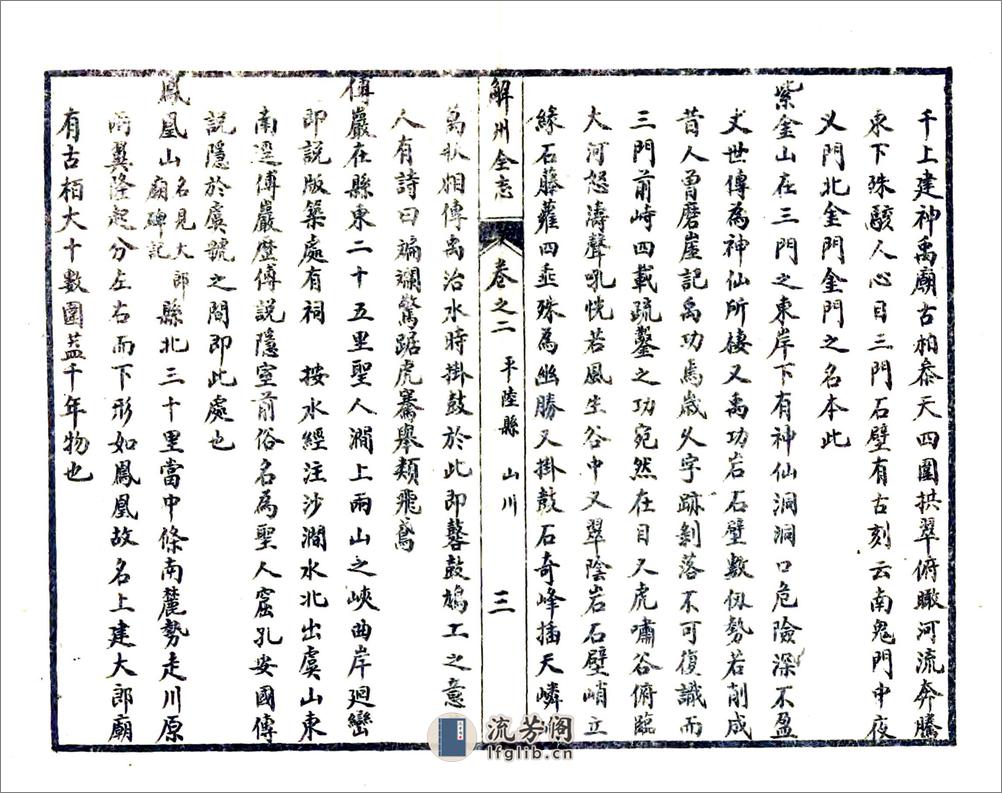 千上建神禹廟古柏叅天四圍拱翠俯瞰河流奔騰
東下殊駭人心目三門石壁有古刻云南鬼門中夜
义門北金門金門之名本此
紫金山在三門之東岸下有神仙洞洞口危險深不盈
丈世傳為神仙所棲又禹功岩石壁數仭勢若削成
昔人曾磨崖記禹功焉歳久字跡剝落不可復識而
三門前峙四載疏鑿之功宛然在目又虎嘯谷俯臨
大河怒濤聲吼恍若風生谷中又翠陰岩石壁峭立
緣石藤蘿四垂殊為幽勝又掛鼓石奇峰插天嶙
解州全志 卷之二 平陸縣 山川 三
萬狀相傳禹治水時掛鼓於此即鼛鼓鳩工之意
人有詩曰斒斕驚踞虎騫舉類飛鳶
傅巖在縣東二十五里聖人澗上兩山之峽曲岸迴巒
即説版築處有祠 按水經注沙澗水北出虞山東
南逕傅巖歴傅説隱室前俗名為聖人窟孔安國傳
説隱於虞虢之間即此處也
鳳凰山名見大郎廟碑記縣北三十里當中條南麓勢走川原
兩翼隆起分左右而下形如鳳凰故名上建大郎廟
有古柏大十數圍葢千年物也
流芳閣
lfglib.cn